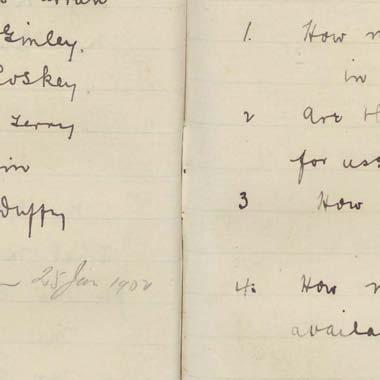 Ginley.
Coskey
Terry
Duffy
25 Jan 1902
1. How
in
2 Are H
for use
3 How
4. How
availa